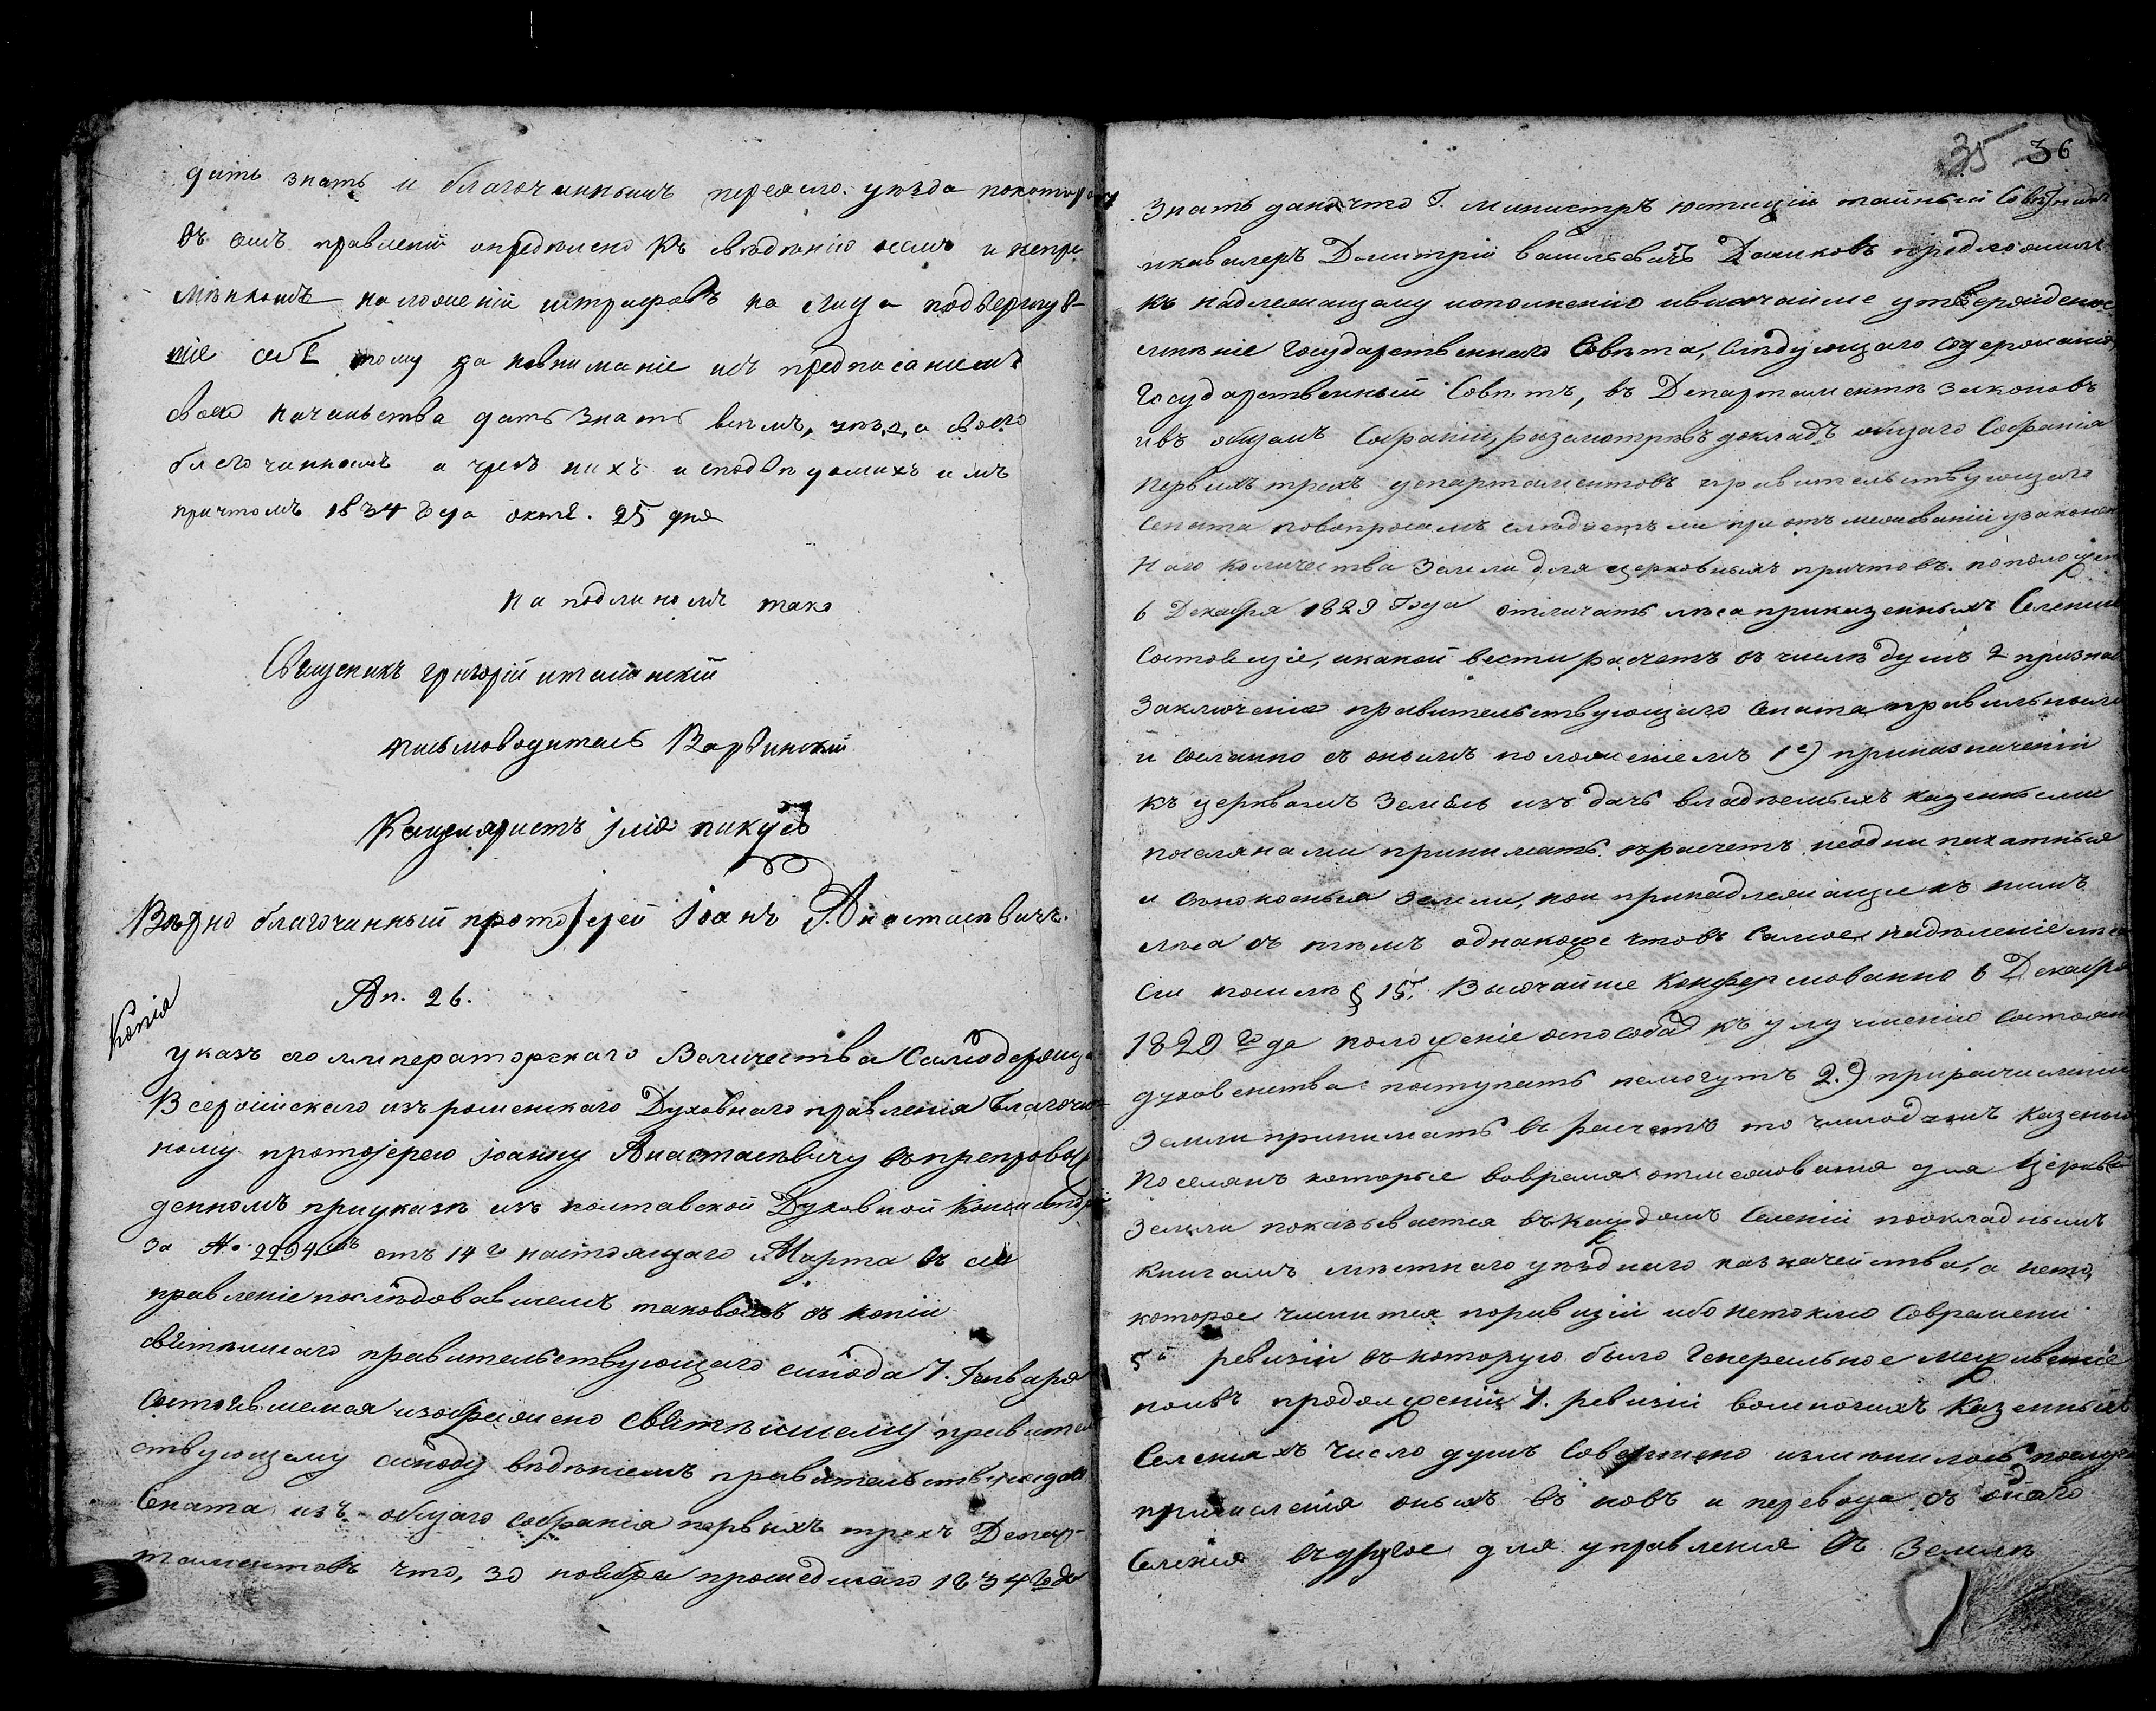 дать знать и благочиннымъ переясло. уѣзда покоторому
въ семъ правленіи опредѣлено къ свѣдѣнію всемъ и непре
мѣнномъ наложеніи штрафовъ на лица подвергну8-
шіе себѣ тому за невниманіе къ предписаніемъ
своего начальства дать знать всѣмъ, своего
благочиннымъ а чрезъ нихъ и сподвѣдомыхъ имъ
причтомъ 1834 года октя. 25 дня
На подлиномъ тако
Священикъ григорій
письмоводитель Варвинскій
Канцеляристъ Iлія пикусъ
Вѣрно благочинный протоIерей Iоанъ Анастасѣвичъ.
Копія
Ап. 26.
указъ его императорскаго Величества Самодержца
Всеросійскаго изъ роменскаго Духовнаго правленія благочин
ному протоjерею Jоанну Анастасѣвичу въпрепровож
денномъ приуказѣ изъ полтавской Духовной Консисторіи
за №. 2294 отъ 14го настоящаго Марта въ сie
правленіе послѣдовавшемъ таковомъ въ копіи
святѣйшаго правительствующаго синода 7. Генваря
Состоявшемся изображено святѣйшему правитель
ствующему синоду вѣдѣніемъ правительствующаго
Сената изъ общаго собранія первыхъ трехъ Депар-
таментовъ что, 30 ноября прошедшаго 1834 года
35 36
Знать дано что Г. министръ юстиціи тайный Совѣтникъ
икавалеръ Дмитрій васильевичъ Дашковъ предложилъ
къ надлежащему исполненію ивысочайше утвержденное
мнѣніе государственнаго Совѣта, Слѣдующаго содержанія,
Государственный Совѣтъ, въ Департаментѣ законовъ
ивъ общемъ Собраніи, разсмотрѣвъ докладъ общаго Собранія
первыхъ трехъ департаментовъ правительствующаго
Сената повопросамъ слѣдуетъ ли при отмежеваніи узаконен
наго количества Земли для церковныхъ причтовъ. поположен
6 Декабря 1829 Года отличать лѣса приказенныхъ Селеніи
Состоящіе, икакой вести расчетъ въ числѣ душъ 2 призналъ
Заключеніе правительствующаго Сената правильнымъ
и согласно съ онымъ положеніемъ 1е) приназначеніи
къ церквамъ Земель изъ дачь владѣемыхъ казенными
поселянами принимать въ расчетъ неодни пахатныя
и сѣнокосныя земли, нои принадлежащие къ нимъ
лѣса съ тѣмъ однакоже чтовъ самое надѣленіе лѣса
Сіи посилѣ § 15. Высочайше Конфермованно 6 Декабря
1829 года положеніе оспособахъ къ улучшенію Состоянія
духовенства поступать немогутъ 2.е) прирасчисленіи
Земли принимать въ расчетъ то числодушъ казенныхъ
поселянъ которые вовремя отмежованія для Церквей
Земли показывается въкаждомъ Селеніи поокладнымъ
Книгамъ мѣстнаго уѣзднаго казначейства, а нето,
которое числится поревизіи ибо нетокмо Современи
5й ревизіи въкоторую было Генеральное межеваніе
ноивъ продолженіи 7. ревизіи вомногихъ Казенныхъ
Селеніяхъ число душъ Совершено измѣнилось
причисленія оныхъ въ новъ и перевода съ одного
Селенія въдругое для управленія въ Землѣ